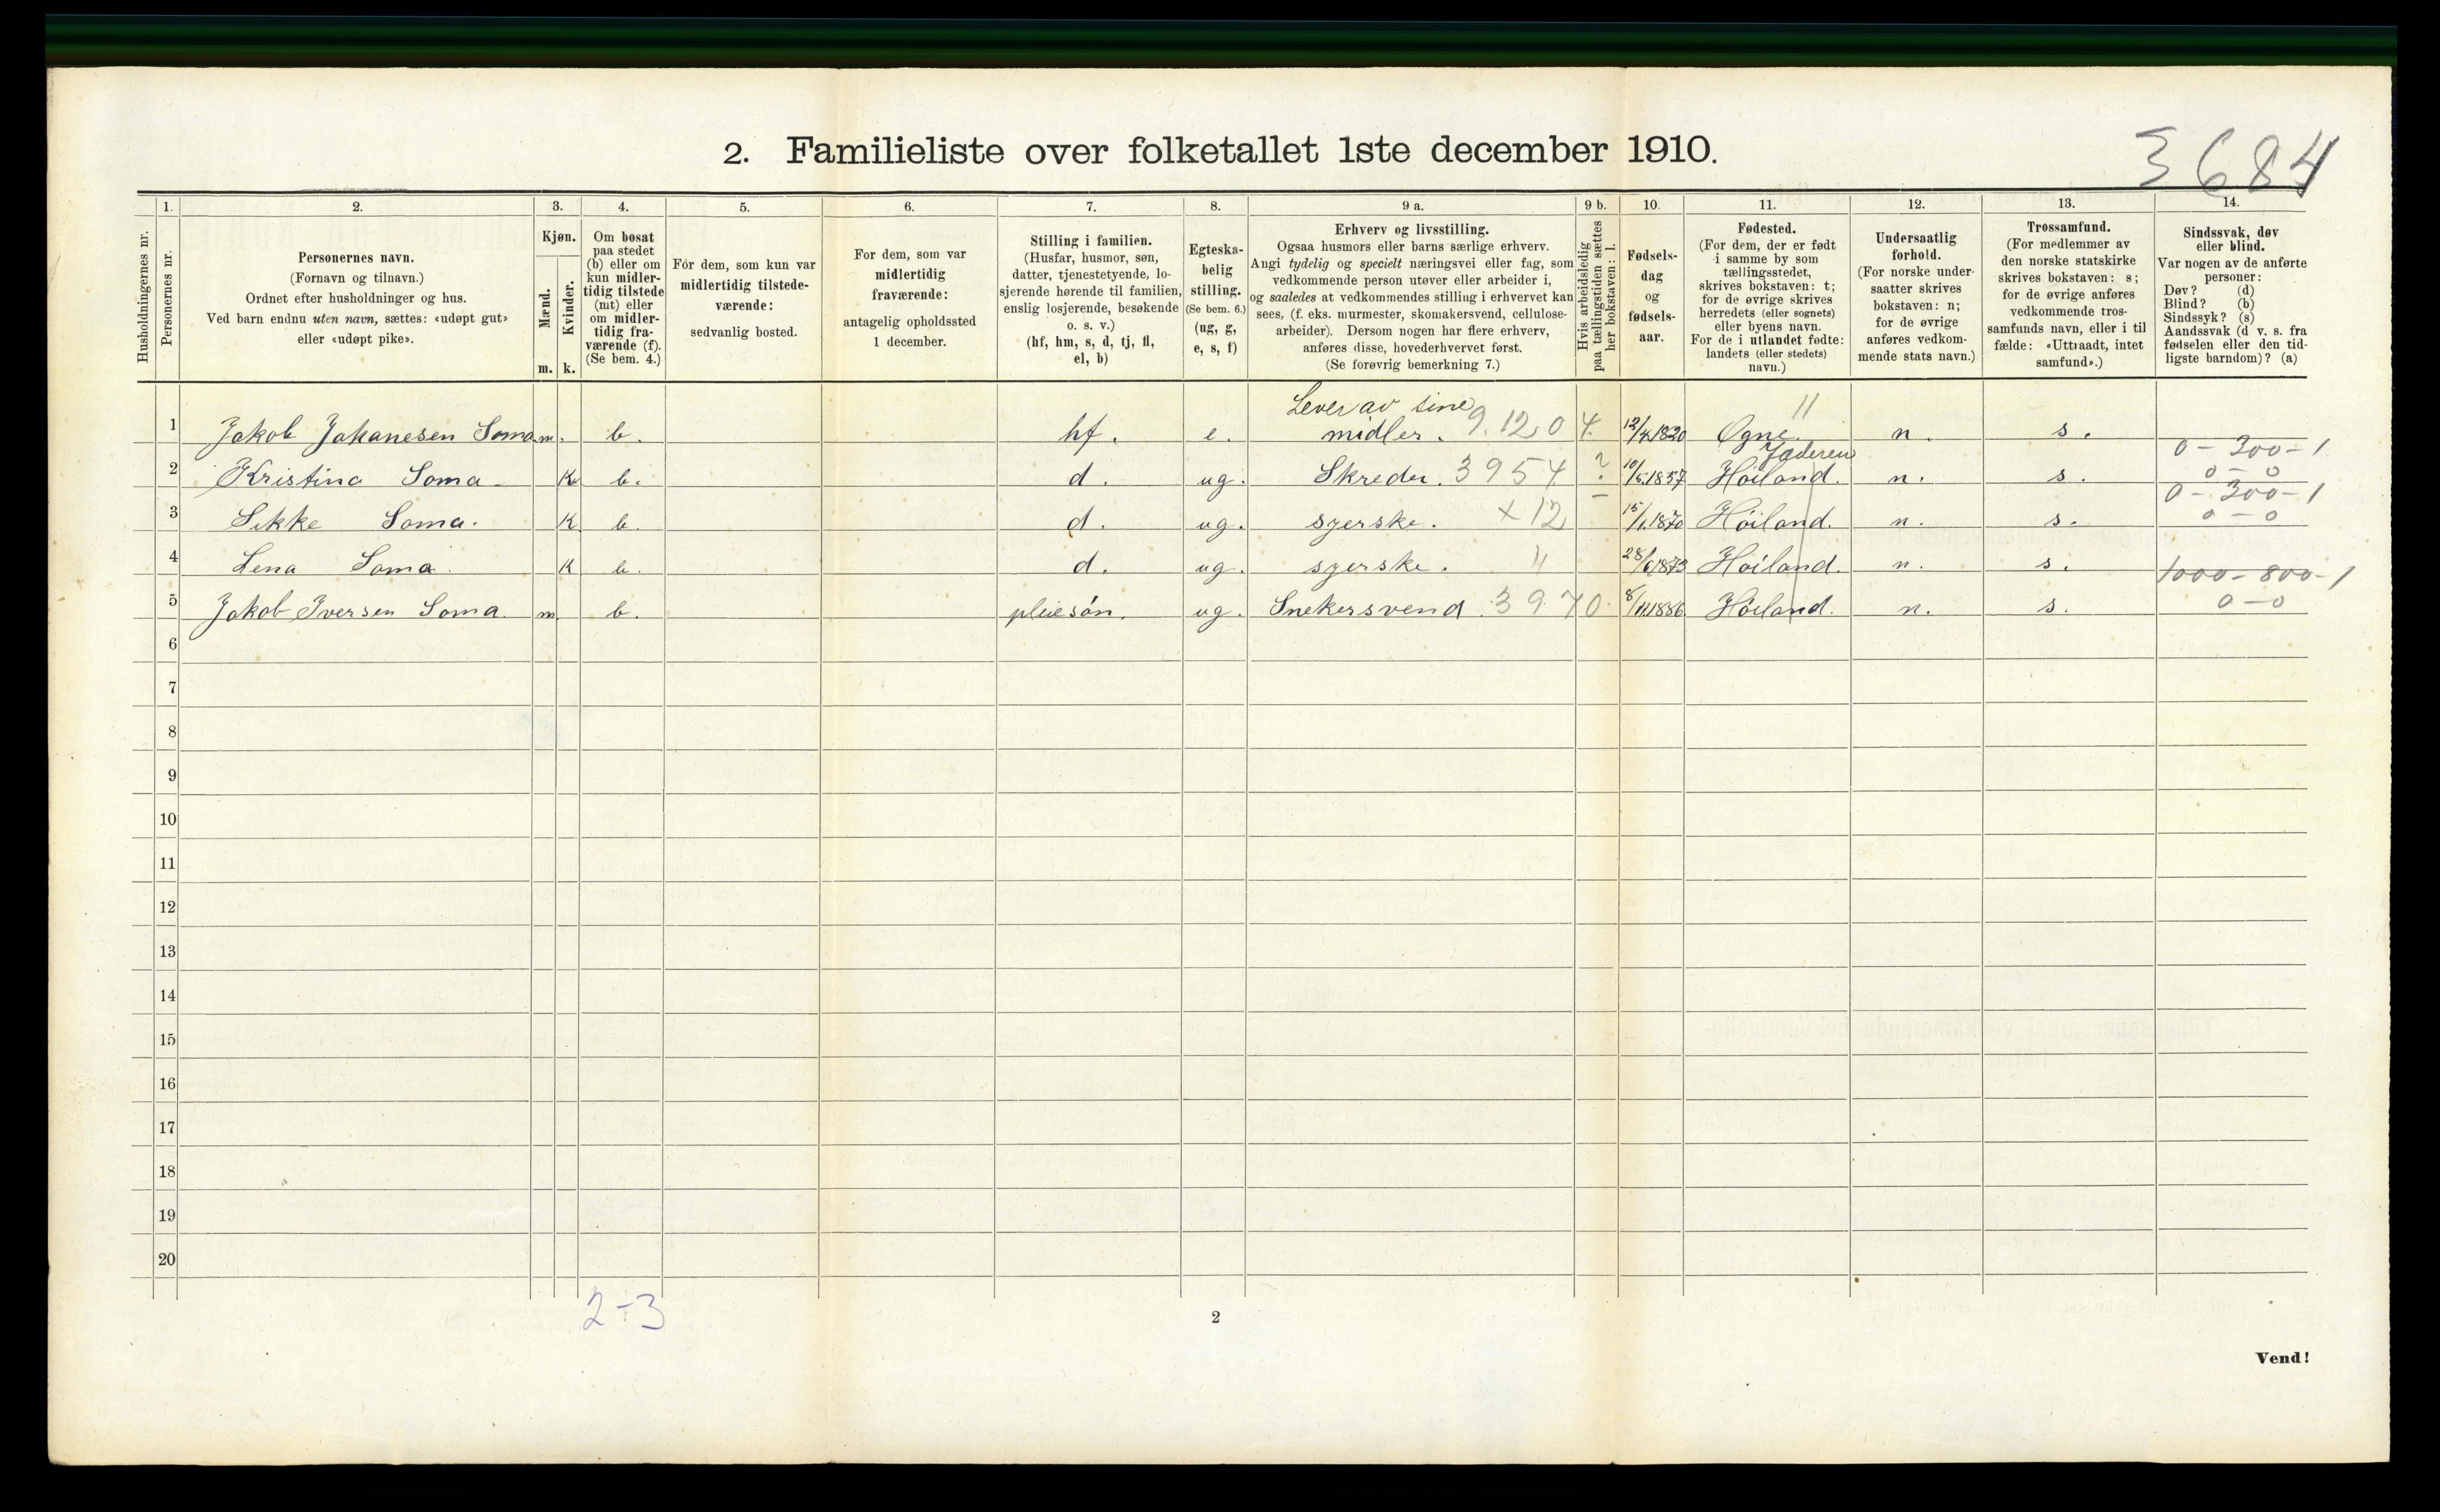 2. Familieliste over folketallet 1ste december 1910.
3684
Husholdningernes nr.
1.
Personernes nr.
2.
Personernes navn.
(Fornavn og tilnavn.)
Ordnet efter husholdninger og hus.
Ved barn endnu uten navn, sættes: «udøpt gut»
eller «udøpt pike».
3.
Kjøn.
Mænd.
Kvinder.
m.
k.
4.
Om bosat
paa stedet
(b) eller om
kun midler-
tidig tilstede
(mt) eller
om midler-
tidig fra-
værende (f).
(Se bem. 4.)
5.
For dem, som kun var
midlertidig tilstede-
værende:
sedvanlig bosted.
6.
For dem, som var
midlertidig
fraværende:
antagelig opholdssted
1 december.
7.
Stilling i familien.
(Husfar, husmor, søn,
datter, tjenestetyende, lo-
sjerende hørende til familien,
enslig losjerende, besøkende
o. s. v.)
(hf, hm, s, d, tj, fl,
el, b)
8.
Egteska-
belig
stilling.
(Se bem. 6.)
(ug, g,
e, s, f)
9 a.
Erhverv og livsstilling.
Ogsaa husmors eller barns særlige erhverv.
Angi tydelig og specielt næringsvei eller fag, som
vedkommende person utøver eller arbeider i,
og saaledes at vedkommendes stilling i erhvervet kan
sees, (f. eks. murmester, skomakersvend, cellulose-
arbeider). Dersom nogen har flere erhverv,
anføres disse, hovederhvervet først.
(Se forøvrig bemerkning 7.)
9 b.
Hvis arbeidsledig
paa tællingstiden sættes
her bokstaven: l.
10.
Fødsels-
dag
og
fødsels-
aar.
11.
Fødested.
(For dem, der er født
i samme by som
tællingsstedet,
skrives bokstaven: t;
for de øvrige skrives
herredets (eller sognets)
eller byens navn.
For de i utlandet fødte:
landets (eller stedets)
navn.)
12.
Undersaatlig
forhold.
(For norske under-
saatter skrives
bokstaven: n;
for de øvrige
anføres vedkom-
mende stats navn.)
13.
Trossamfund.
(For medlemmer av
den norske statskirke
skrives bokstaven: s;
for de øvrige anføres
vedkommende tros-
samfunds navn, eller i til
fælde: «Uttraadt, intet
samfund».)
14.
Sindssvak, døv
eller blind.
Var nogen av de anførte
personer:
Døv? (d)
Blind? (b)
Sindssyk? (s)
Aandssvak (d v. s. fra
fødselen eller den tid-
ligste barndom)? (a)
1 Jakob Johanesen Soma m. b. hf. e. Lever av sine midler. 9.12.04. 12/4 1820 Ogne. Jæderen 11 n. s.
0-300-1
2 Kristina Soma k b. d. ug. Skreder. 3954 ? 10/5 1857 Höiland. n. s. 0-0
0-300-1
3 Sikke Soma. K b. d. ug. syerske. x12 15/1 1870 Höiland. n. s. 0-0
4 Lena Soma. K b. d. ug. syerske. 11 28/6 1873 Höiland. n. s.
1000-800-1
5 Jakob Iversen Soma. m. b. pleiesön. ug. Snekersvend. 3970. 8/11 1886 Höiland. n. s. 0-0
6
7
8
9
10
11
12
13
14
15
16
17
18
19
20
2-3
2
Vend!